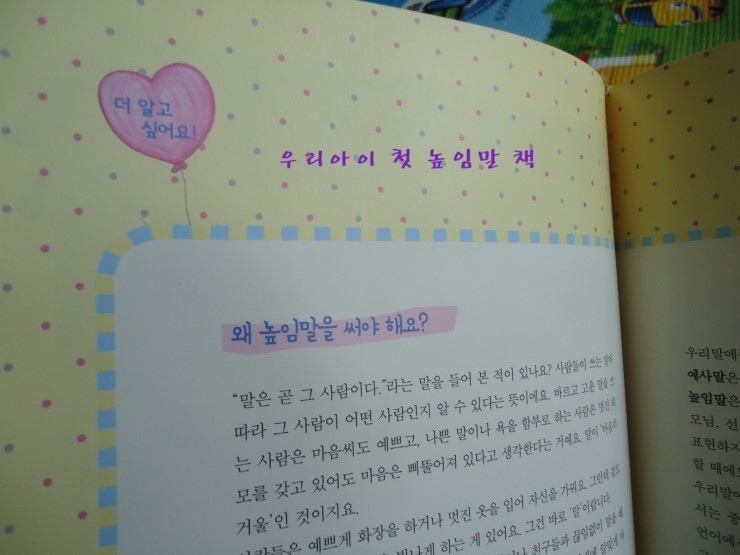 더 알고
싶어요!
우리아이 첫 높임말 책
왜 높임말을 써야 해요?
“말은 곧 그 사람이다.”라는 말을 들어 본 적이 있나요? 사람들이 쓰는 말에
따라 그 사람이 어떤 사람인지 알 수 있다는 뜻이에요. 바르고 고운 말을 쓰
는 사람은 마음씨도 예쁘고, 나쁜 말이나 욕을 함부로 하는 사람은 멋진 외
모를 갖고 있어도 마음은 삐뚤어져 있다고 생각한다는 거예요. 말이 ‘마음의
거울’인 것이지요.
사람들은 예쁘게 화장을 하거나 멋진 옷을 입어 자신을 가꿔요. 그런데 겉모
빛나게 하는 게 있어요. 그건 바로 ‘말’이랍니다.
친구들과 끊임없이 말을 해
우리말에
예사말은
높임말은
모님, 선
표현하지
할 때에도
우리말에
서는 중
언어에서